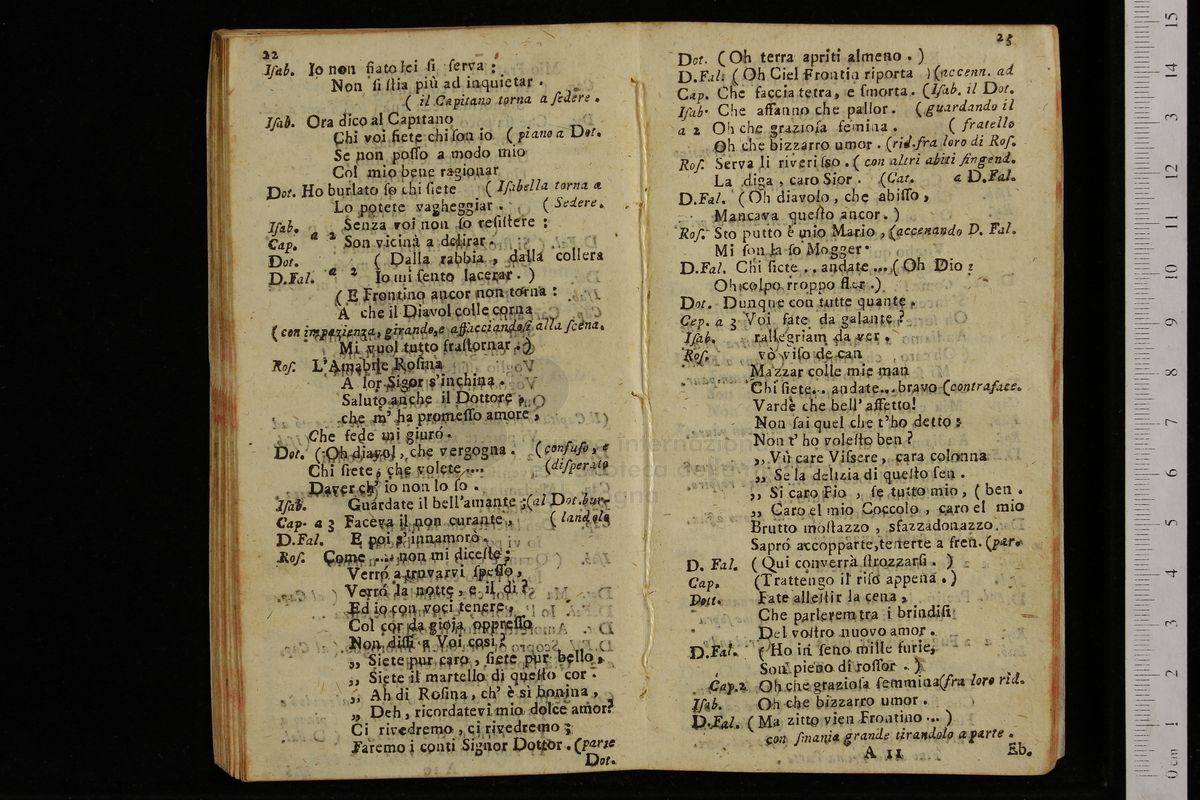 22
Iſab. Io non ſiato lei ſi ſerva :
Non ſi ſlia più ad inquietar .
( il Capitano torna a ſedere .
Iſab. Ora dico al Capitano
Chi voi ſiete chi ſon io ( piano a Dot.
Se non poſſo a modo mio
Col mio bene ragionar
Dot. Ho burlato ſo chi ſiete ( Iſabella torna a
Lo potete vagheggiar . ( Sedere .
Iſab. a 2 Senza voi non ſo reſiſtere ;
Cap. Son vicina a delirar .
Dot. a 2 ( Dalla rabbia , dalla collera
D.Fal. Io mi ſento lacerar . )
( E Frontino ancor non torna :
A che il Diavol colle corna
( con impazienza, girando, e affacciandoſi alla ſcena.
Mi vuol tutto fraſtornar . )
Roſ. L'Amabile Roſina
A lor Sigor s'inchina .
Saluto anche il Dottore ,
che m' ha promeſſo amore ,
Che fede mi giurò .
Dot. ( Oh diavol , che vergogna . ( confuſo , e
Chi ſiete , che volete .... ( diſperato
Daver ch' io non lo ſo .
Iſab. Guardate il bell'amante ;( al Dot. bur-
Cap. a 3 Faceva il non curante , ( landolo
D.Fal. E poi s' innamorò .
Roſ. Come .... non mi diceſte ;
Verrò a trovarvi ſpeſſo ,
Verrò la notte , e il dì ?
Ed io con voci tenere ,
Col cor da gioja oppreſſo
Non diſſi a Voi cosi ?
,, Siete pur caro , ſiete pur bello ,
,, Siete il martello di queſto cor .
,, Ah di Roſina , ch' è sì bonina ,
,, Deh , ricordatevi mio dolce amor?
Ci rivedremo , ci rivedremo ;
Faremo i conti Signor Dottor . ( parte
Dot.
23
Dot. ( Oh terra apriti almeno . )
D.Fal. ( Oh Ciel Frontin riporta ) ( accenn. ad
Cap. Che faccia tetra , e ſmorta . ( Iſab. il Dot.
Iſab. Che affanno che pallor . ( guardando il
a 2 Oh che grazioſa femina . ( fratello
Oh che bizzarro umor . ( rid. fra loro di Roſ.
Roſ. Serva li riveriſso . ( con altri abiti fingend.
La diga , caro Sior . ( Cat. a D.Fal.
D.Fal. ( Oh diavolo , che abiſſo ,
Mancava queſto ancor . )
Roſ. Sto putto è mio Mario , ( accenando D. Fal.
Mi ſon la ſo Mogger .
D.Fal. Chi ſiete .. andate ... ( Oh Dio :
Oh colpo troppo fler . )
Dot. Dunque con tutte quante ,
Cep. a 3 Voi fate da galante ?
Iſab. rallegriam da ver .
Roſ. vò viſo de can
Mazzar colle mie man
Chi ſiete... andate...bravo ( contraface.
Vardè che bell' affetto!
Non ſai quel che t'ho detto ;
Non t' ho voleſto ben ?
,, Vù care Viſsere , cara colonna
,, Se la delizia di queſto ſen .
,, Si caro Fio , ſe tutto mio , ( ben .
,, Caro el mio Coccolo , caro el mio
Brutto moſtazzo , sfazzadonazzo.
Sapró accopparte, tenerte a fren. ( par.
D. Fal. ( Qui converrà ſtrozzarſi . )
Cap. (Trattengo il riſo appena . )
Dott. Fate alleſtir la cena ,
Che parlerem tra i brindiſi
Del voſtro nuovo amor .
D.Fal. ( Ho in ſeno mille furie,
Son pieno di roſſor . )
Cap. 2 Oh che grazioſa ſemmina ( fra loro rid.
Iſab. Oh che bizzarro umor .
D.Fal. ( Ma zitto vien Frontino ... )
con ſmania grande tirandolo a parte .
A 11 Eb.
0 cm 1 2 3 4 5 6 7 8 9 10 11 12 13 14 15